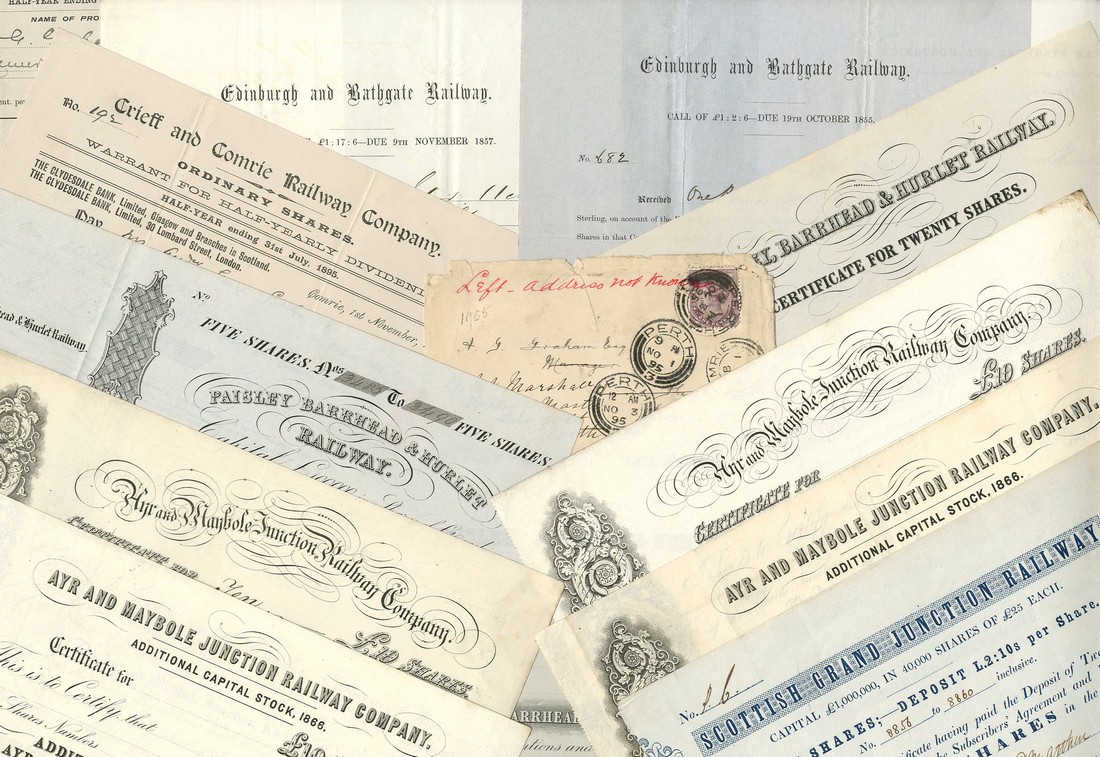 HALF-YEAR ENDING
NAME OF PRO
Edinburgh and Bathgate Railway.
£1:17:6—DUE 9TH NOVEMBER 1857.
Edinburgh and Bathgate Railway.
CALL OF £1:2:6—DUE 19TH OCTOBER 1855.
No. 682
Received One
Sterling, on account of the
Shares in that C
No. 192
Crieff and Comrie Railway Company.
ORDINARY SHARES.
WARRANT FOR HALF-YEARLY DIVIDEN
HALF-YEAR ending 31st July, 1895.
THE CLYDESDALE BANK, Limited, Glasgow and Branches in Scotland.
THE CLYDESDALE BANK, Limited, 30 Lombard Street, London.
Pay
Comrie, 1st November,
L BARRHEAD & HURLET RAILWAY.
CERTIFICATE FOR TWENTY SHARES.
Left - address not know
1955
A G. Graham Esq
Marshall
PERTH
9 PM
NO 1
95
3
PERTH
12 AM
NO 3
95
ead & Hurlet Railway.
No
FIVE SHARES. Nos
To
FIVE SHARES.
PAISLEY BARRHEAD & HURLET
RAILWAY.
Ayr and Maybole Junction Railway Company.
CERTIFICATE FOR
£10 SHARES.
AYR AND MAYBOLE JUNCTION RAILWAY COMPANY.
ADDITIONAL CAPITAL STOCK, 1866.
Ayr and Maybole Junction Railway Company.
CERTIFICATE FOR Ten
£10 SHARES.
AYR AND MAYBOLE JUNCTION RAILWAY COMPANY.
ADDITIONAL CAPITAL STOCK, 1866.
Certificate for
£10
This is to Certify that
Shares Numbers
ADDI
AYR
ARRHEAD
tions and
SCOTTISH GRAND JUNCTION RAILWAY
CAPITAL £1,000,000, IN 40,000 SHARES OF £25 EACH.
No.
SHARES;—DEPOSIT L.2:10s per Share.
No. 8856 to 8860 inclusive.
ificate having paid the Deposit of Two
the Subscribers' Agreement and
HARES in the